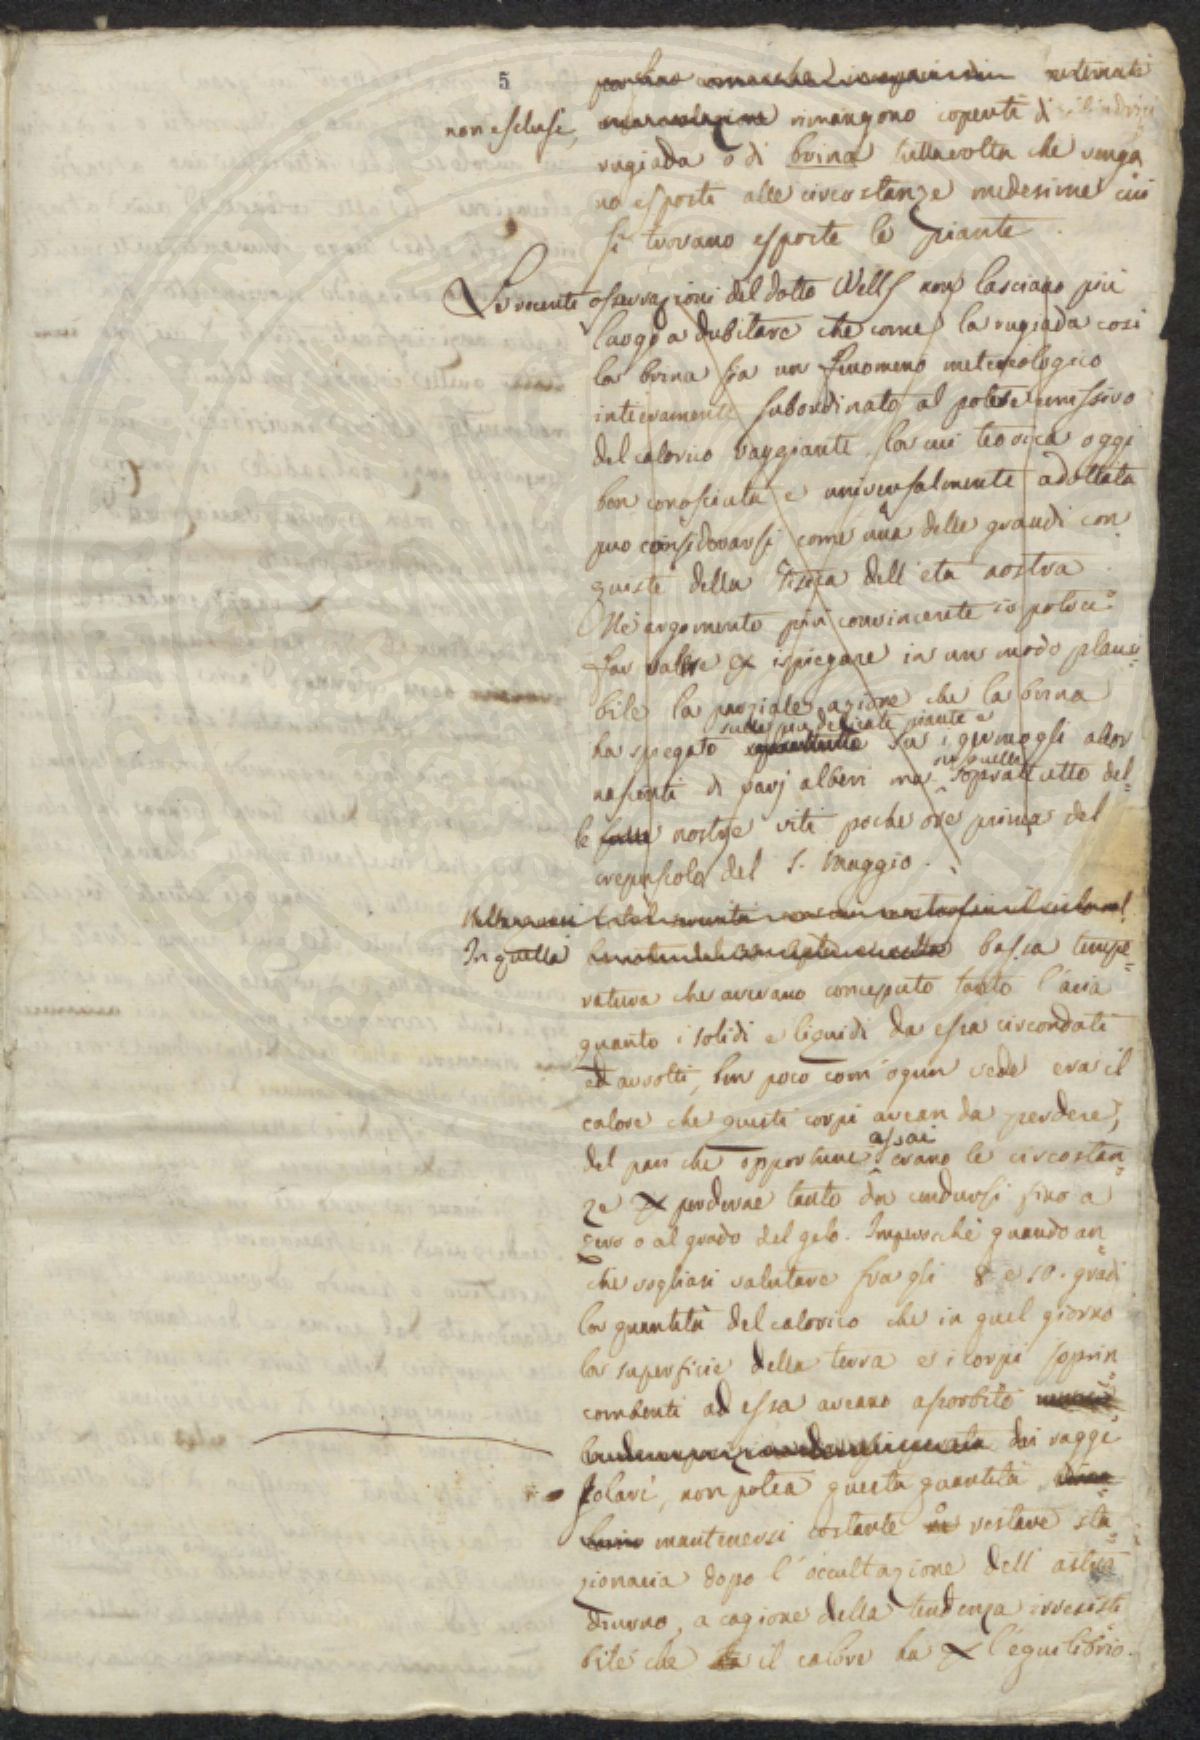 5
non escluse, rimangono coperti di
rugiada o di brina tuttavolta che venga
no esposti alle circostanze medesime cui
si trovano esposte le piante.
Le recenti osservazioni del dotto Wells non lasciano più
luogo a dubitare che come la rugiada così
la brina sia un fenomeno meteorologico
interamente subordinato al potere emissivo
del calorico raggiante, la cui teorica oggi
ben conosciuta e universalmente adottata
può considerarsi come una delle grandi con
quiste della Fisica dell'età nostra.
Nè argomento più convincente io potrei
far valere per ispiegare in un modo plausi=
bile la parziale azione che la brina
sulle più delicate piante e
ha spiegato su i germogli allor
su quelli
nascenti di varj alberi ma soprattutto del=
le nostre viti poche ore prima del
crepuscolo del 5. Maggio.
In quella bassa tempe=
ratura che avevano concepito tanto l'aria
quanto i solidi e liquidi da essa circondati
ed avvolti, ben poco com'ogun vede era il
calore che questi corpi avean da perdere,
assai
del pari che opportune erano le circostan=
ze per perderne tanto da condursi fino a
zero o al grado del gelo. Imperocchè quando an=
che vogliasi valutare fra gli 8 e 10. gradi
la quantità del calorico che in quel giorno
la superficie della terra e i corpi soprin
combenti ad essa aveano assorbito
dai raggi
solari, non potea questa quantità
mantenersi costante o restare sta=
zionaria dopo l'occultazione dell'astro
diurno, a cagione della tendenza irresisti
bile che il calore ha per l'equilibrio.